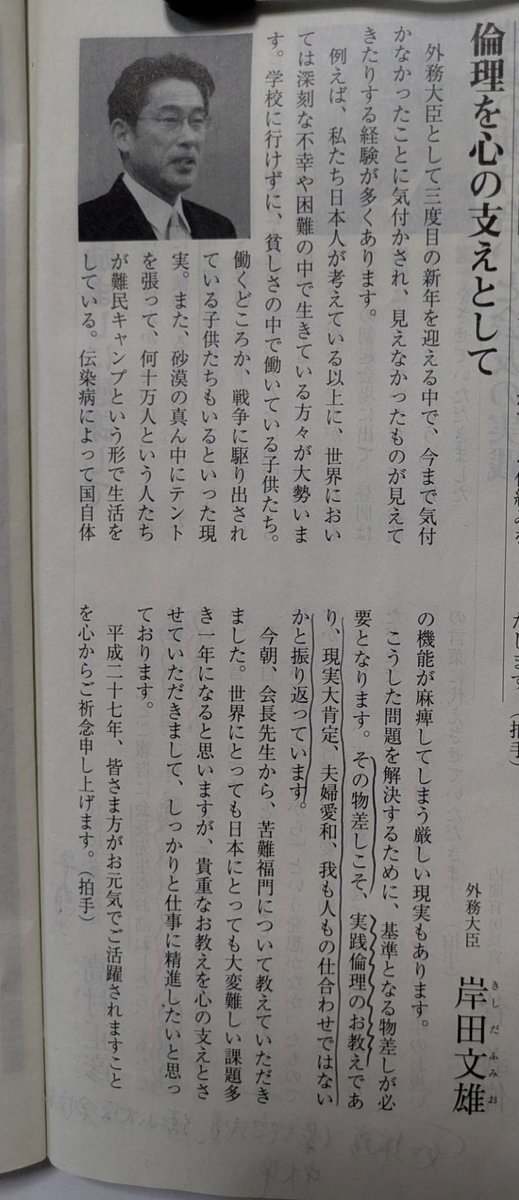 倫理を心の支えとして
外務大臣
岸田文雄
きしだふみお
外務大臣として三度目の新年を迎える中で、今まで気付
かなかったことに気付かされ、見えなかったものが見えて
きたりする経験が多くあります。
例えば、私たち日本人が考えている以上に、世界におい
ては深刻な不幸や困難の中で生きている方々が大勢いま
す。学校に行けずに、貧しさの中で働いている子供たち。
働くどころか、戦争に駆り出され
ている子供たちもいるといった現
実。また、砂漠の真ん中にテント
を張って、何十万人という人たち
が難民キャンプという形で生活を
している。伝染病によって国自体
の機能が麻痺してしまう厳しい現実もあります。
こうした問題を解決するために、基準となる物差しが必
要となります。その物差しこそ、実践倫理のお教えであ
り、現実大肯定、夫婦愛和、我も人もの仕合わせではない
かと振り返っています。
今朝、会長先生から、苦難福門について教えていただき
ました。世界にとっても日本にとっても大変難しい課題多
き一年になると思いますが、貴重なお教えを心の支えとさ
せていただきまして、しっかりと仕事に精進したいと思っ
ております。
平成二十七年、皆さま方がお元気でご活躍されますこと
を心からご祈念申し上げます。（拍手）
（拍手）